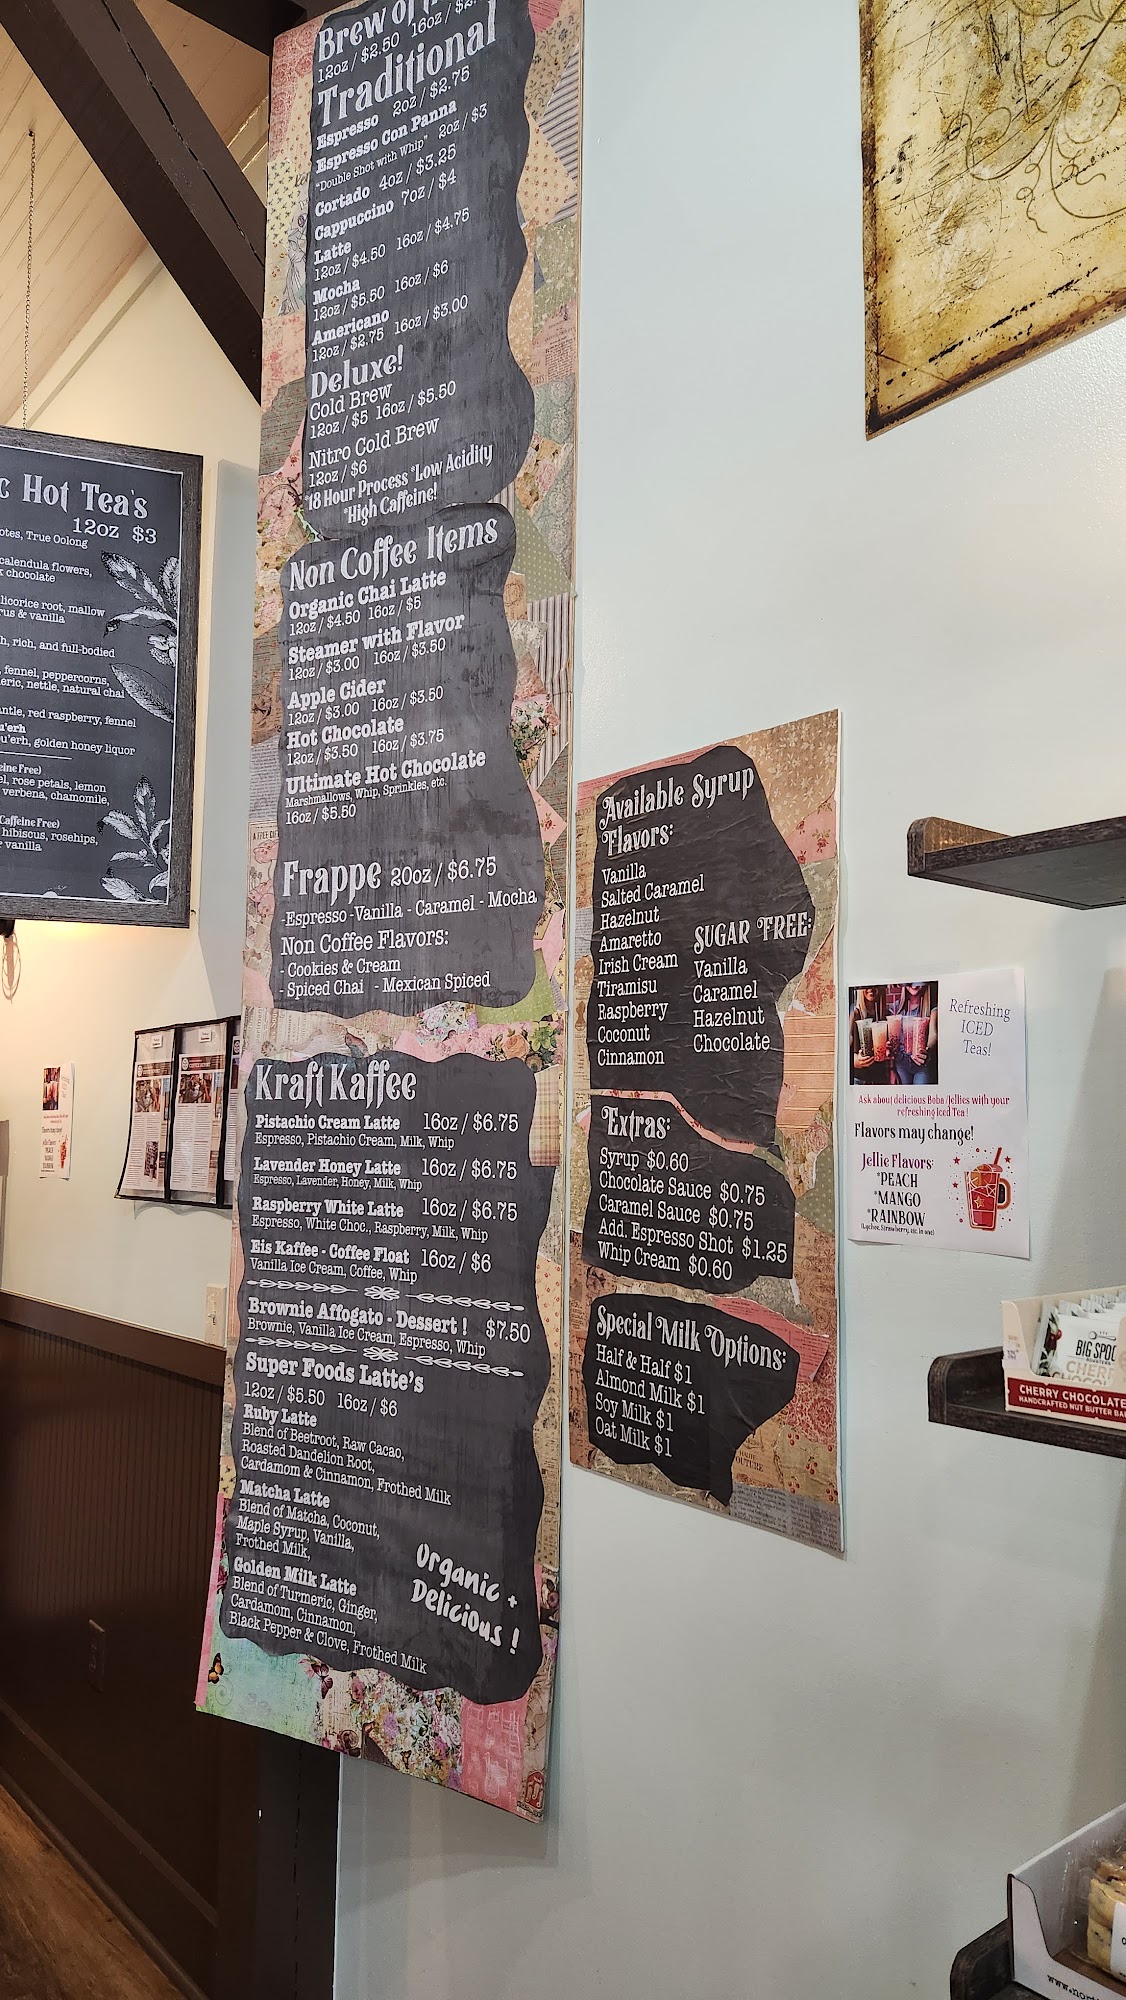 Brew of
12oz / $2.50 16oz / $2.
Traditional
Espresso 2oz / $2.75
Espresso Con Panna 2oz / $3
"Double Shot with Whip"
Cortado 4oz / $3.25
Cappuccino 7oz / $4
Latte
12oz / $4.50 16oz / $4.75
Mocha
12oz / $5.50 16oz / $6
Americano
12oz / $2.75 16oz / $3.00
Deluxe!
Cold Brew
12oz / $5 16oz / $5.50
Nitro Cold Brew
12oz / $6
*18 Hour Process *Low Acidity
*High Caffeine!
Non Coffee Items
Organic Chai Latte
12oz / $4.50 16oz / $5
Steamer with Flavor
12oz / $3.00 16oz / $3.50
Apple Cider
12oz / $3.00 16oz / $3.50
Hot Chocolate
12oz / $3.50 16oz / $3.75
Ultimate Hot Chocolate
Marshmallows, Whip, Sprinkles, etc.
16oz / $5.50
Frappe 20oz / $6.75
-Espresso -Vanilla - Caramel - Mocha
Non Coffee Flavors:
- Cookies & Cream
- Spiced Chai - Mexican Spiced
Kraft Kaffee
Pistachio Cream Latte 16oz / $6.75
Espresso, Pistachio Cream, Milk, Whip
Lavender Honey Latte 16oz / $6.75
Espresso, Lavender, Honey, Milk, Whip
Raspberry White Latte 16oz / $6.75
Espresso, White Choc., Raspberry, Milk, Whip
Eis Kaffee - Coffee Float 16oz / $6
Vanilla Ice Cream, Coffee, Whip
Brownie Affogato - Dessert ! $7.50
Brownie, Vanilla Ice Cream, Espresso, Whip
Super Foods Latte's
12oz / $5.50 16oz / $6
Ruby Latte
Blend of Beetroot, Raw Cacao,
Roasted Dandelion Root,
Cardamom & Cinnamon, Frothed Milk
Matcha Latte
Blend of Matcha, Coconut,
Maple Syrup, Vanilla,
Frothed Milk,
Golden Milk Latte
Blend of Turmeric, Ginger,
Cardamom, Cinnamon,
Black Pepper & Clove, Frothed Milk
Organic +
Delicious !
c Hot Tea's
12oz $3
otes, True Oolong
calendula flowers,
k chocolate
licorice root, mallow
rus & vanilla
h, rich, and full-bodied
, fennel, peppercorns,
eric, nettle, natural chai
ntle, red raspberry, fennel
u'erh
u'erh, golden honey liquor
eine Free)
el, rose petals, lemon
verbena, chamomile,
Caffeine Free)
hibiscus, rosehips,
vanilla
Available Syrup
Flavors:
Vanilla
Salted Caramel
Hazelnut
Amaretto
Irish Cream
Tiramisu
Raspberry
Coconut
Cinnamon
SUGAR FREE:
Vanilla
Caramel
Hazelnut
Chocolate
Extras:
Syrup $0.60
Chocolate Sauce $0.75
Caramel Sauce $0.75
Add. Espresso Shot $1.25
Whip Cream $0.60
Special Milk Options:
Half & Half $1
Almond Milk $1
Soy Milk $1
Oat Milk $1
Refreshing
ICED
Teas!
Ask about delicious Boba/Jellies with your
refreshing Iced Tea !
Flavors may change!
Jellie Flavors:
*PEACH
*MANGO
*RAINBOW
(Lychee, Strawberry, etc. in one)
BIG SPOO
ROASTERS
CHERRY CHOCOLATE
HANDCRAFTED NUT BUTTER BA